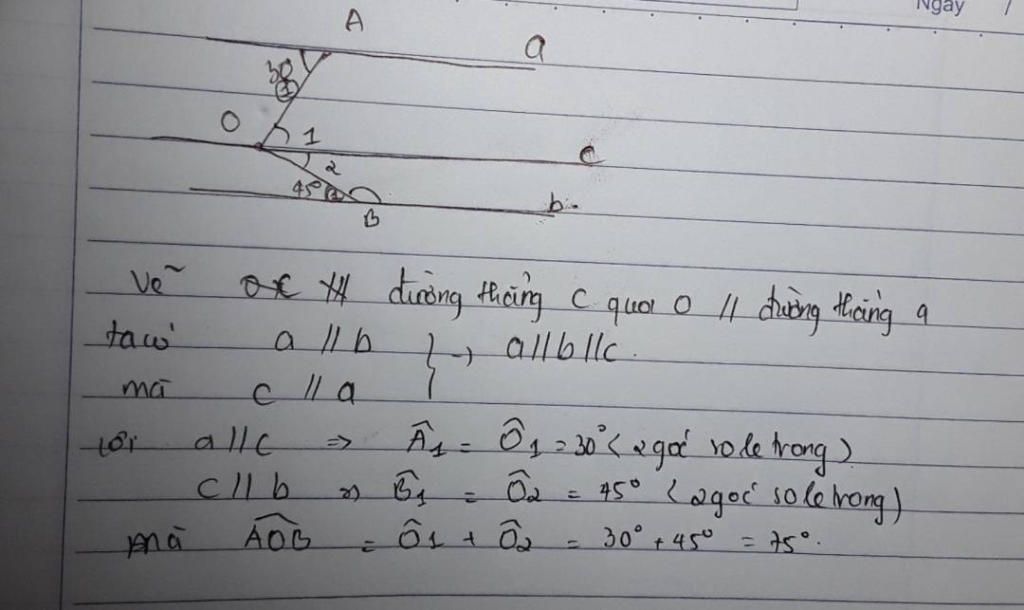 Ngày /
A
a
30
1
O
1
c
2
45° 1
B
b.
Vẽ đường thẳng c qua O // đường thẳng a
ta có a // b } → a//b//c.
mà c // a
với a//c ⇒ Â1 = Ô1 = 30° (2 góc so le trong)
c//b ⇒ B̂1 = Ô2 = 45° (2 góc so le trong)
mà AOB = Ô1 + Ô2 = 30° + 45° = 75°.